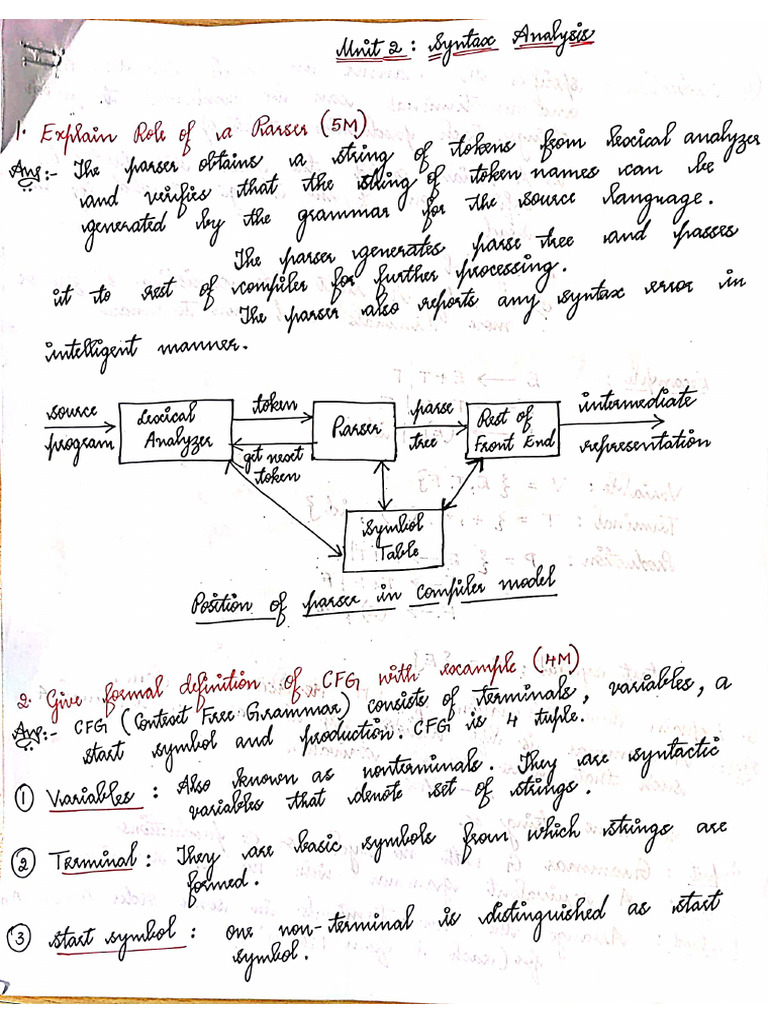 Unit 2 : Syntax Analysis
1. Explain Role of a Parser (5M)
Ans:- The parser obtains a string of tokens from lexical analyzer
and verifies that the string of token names can be
generated by the grammar for the source language.
The parser generates parse tree and passes
it to rest of compiler for further processing.
The parser also reports any syntax error in
intelligent manner.
source program
Lexical Analyzer
token
get next token
Parser
parse tree
Rest of Front End
intermediate representation
Symbol Table
Position of parser in compiler model
2. Give formal definition of CFG with example (4M)
Ans:- CFG (Context Free Grammar) consists of terminals, variables, a
start symbol and production. CFG is 4 tuple.
① Variables : Also known as nonterminals. They are syntactic
variables that denote set of strings.
② Terminal : They are basic symbols from which strings are
formed.
③ start symbol : one non-terminal is distinguished as start
symbol.